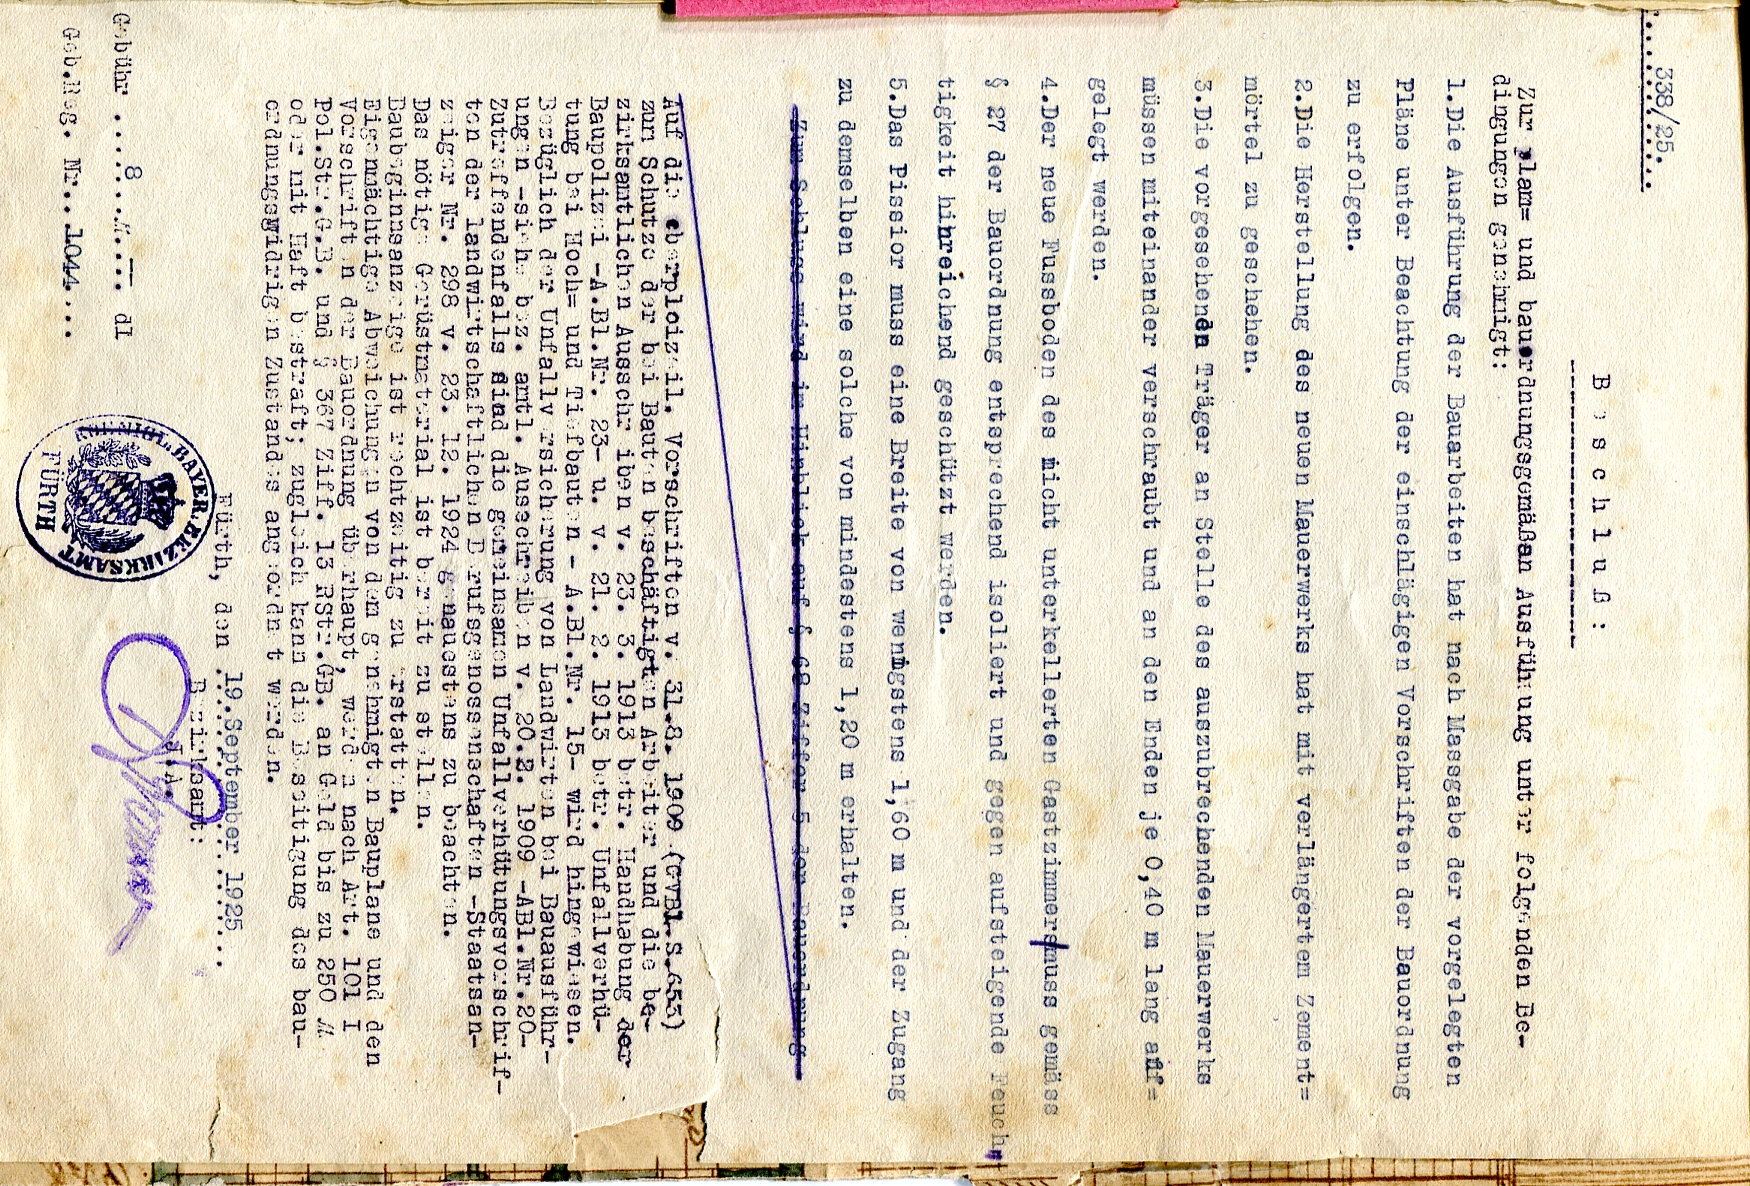 338/25.
Beschluß:
Zur plan= und bauordnungsgemäßan Ausführung unter folgenden Be-
dingungen genehmigt:
1.Die Ausführung der Bauarbeiten hat nach Massgabe der vorgelegten
Pläne unter Beachtung der einschlägigen Vorschriften der Bauordnung
zu erfolgen.
2.Die Herstellung des neuen Mauerwerks hat mit verlängertem Zement=
mörtel zu geschehen.
3.Die vorgesehenen Träger an Stelle des auszubrechenden Mauerwerks
müssen miteinander verschraubt und an den Enden je 0,40 m lang auf=
gelegt werden.
4.Der neue Fussboden des nicht unterkellerten Gastzimmers muss gemäss
§ 27 der Bauordnung entsprechend isoliert und gegen aufsteigende Feuch=
tigkeit hihreichend geschützt werden.
5.Das Pissior muss eine Breite von wenigstens 1,60 m und der Zugang
zu demselben eine solche von mindestens 1,20 m erhalten.
Zum Schluss wird im Hinblick auf § 68 Ziffer 5 der Bauordnung
Auf die oberploizeil. Vorschriften v. 31.8. 1909 (GVBl.S.655)
zum Schutze der bei Bauten beschäftigten Arbeiter und die be-
zirksamtlichen Ausschreiben v. 23. 3. 1913 betr. Handhabung der
Baupolizei -A.Bl.Nr. 23- u. v. 21. 2. 1913 betr. Unfallverhü-
tung bei Hoch= und Tiefbauten - A.Bl.Nr. 15- wird hingewiesen.
Bezüglich der Unfallversicherung von Landwirten bei Bauausführ-
ungen -siehe bez. amtl. Ausschreiben v. 20.2. 1909 -ABl.Nr.20-
Zutreffendenfalls sind die gemeinsamen Unfallverhütungsvorschrif-
ten der landwirtschaftlichen Berufsgenossenschaften -Staatsan-
zeiger Nr. 298 v. 23. 12. 1924 genauestens zu beachten.
Das nötige Gerüstmaterial ist bereit zu stellen.
Baubeginnsanzeige ist rechtzeitig zu erstatten.
Eigenmächtige Abweichungen von dem genehmigten Bauplane und den
Vorschriften der Bauordnung überhaupt, werden nach Art. 101 I
Pol.Str.G.B. und § 367 Ziff. 13 RStr.GB. an Geld bis zu 250 M
oder mit Haft bestraft; zugleich kann die Beseitigung des bau-
ordnungswidrigen Zustandes angeordnet werden.
Fürth, den 19.September 1925
Bezirksamt:
J.A.
KOENIGL.BAYER.BEZIRKSAMT
FÜRTH
Gebühr ....8...M.... dl
Geb.Reg. Nr...1044....